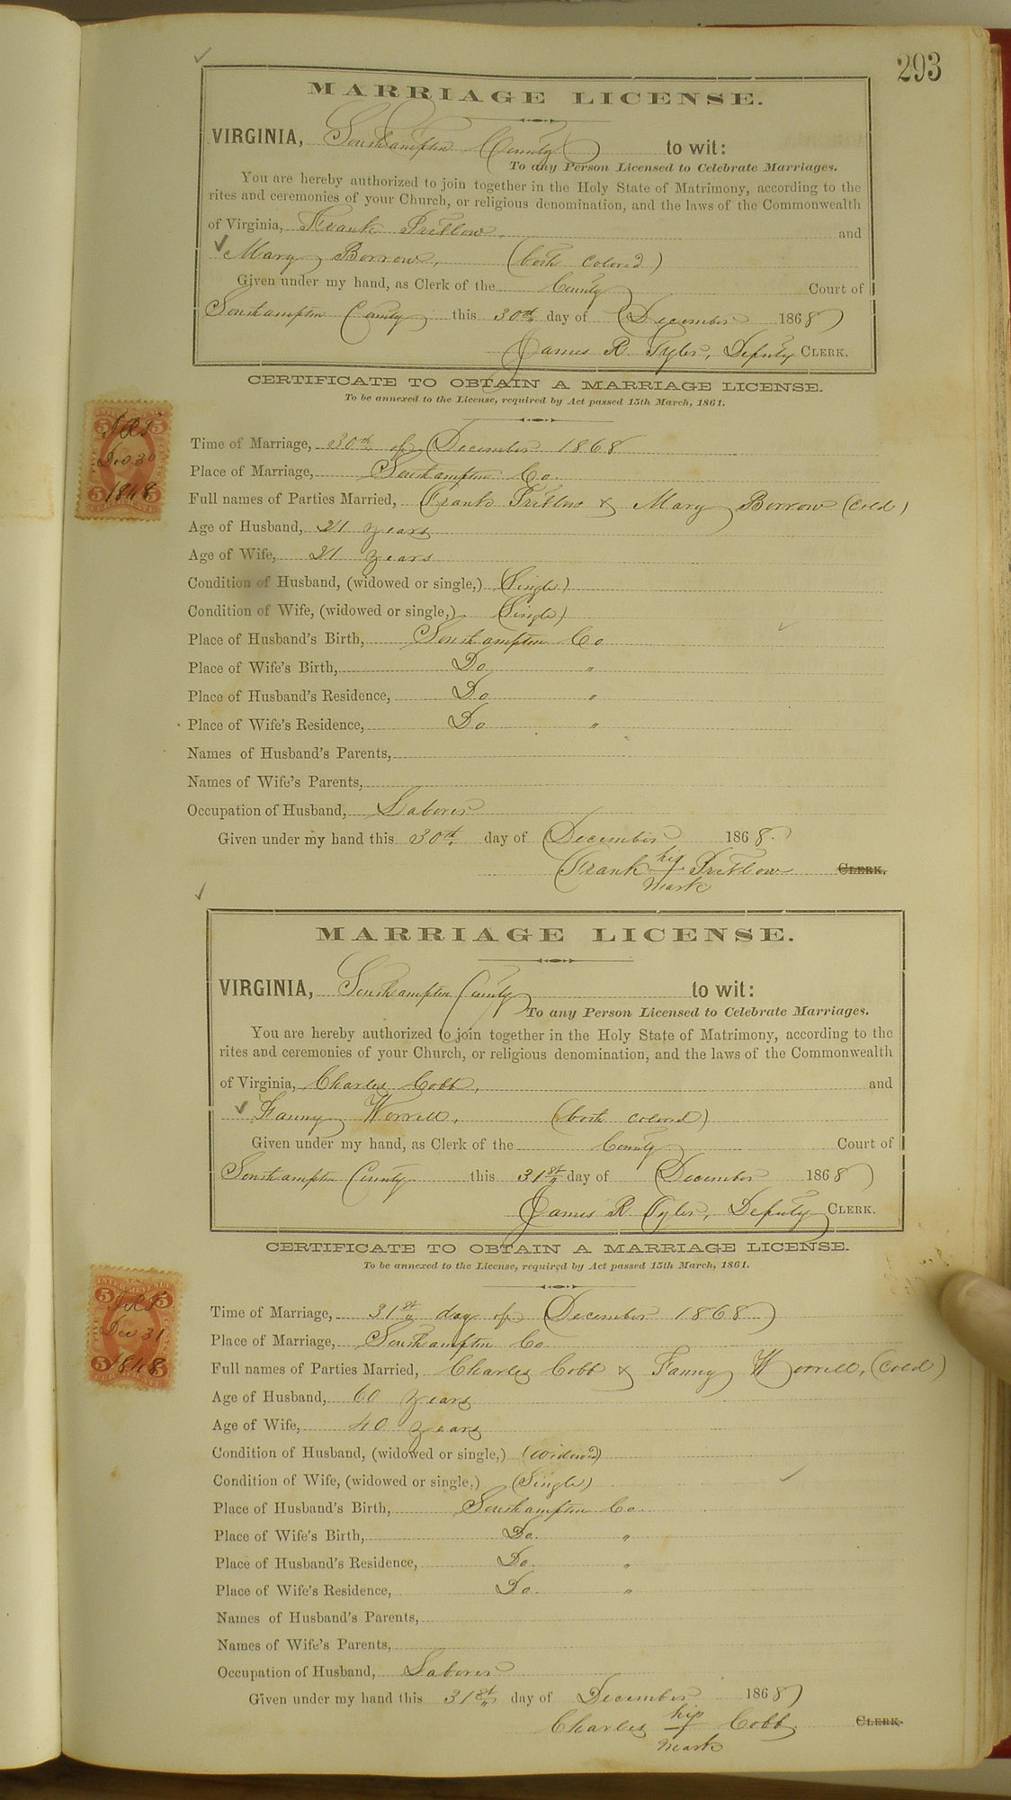 293
MARRIAGE LICENSE.
VIRGINIA, Southampton County to wit:
To any Person Licensed to Celebrate Marriages.
You are hereby authorized to join together in the Holy State of Matrimony, according to the
rites and ceremonies of your Church, or religious denomination, and the laws of the Commonwealth
of Virginia, Frank Pretlow, and
Mary Borrow, (both colored)
Given under my hand, as Clerk of the County Court of
Southampton County this 30th day of December 1868
James R. Tyler, Deputy CLERK.
CERTIFICATE TO OBTAIN A MARRIAGE LICENSE.
To be annexed to the License, required by Act passed 15th March, 1861.
Dec 30
1868
Time of Marriage, 30th of December 1868
Place of Marriage, Southampton Co.
Full names of Parties Married, Frank Pretlow & Mary Borrow (Cold)
Age of Husband, 21 years
Age of Wife, 21 years
Condition of Husband, (widowed or single,) (Single)
Condition of Wife, (widowed or single,) (Single)
Place of Husband's Birth, Southampton Co
Place of Wife's Birth, Do "
Place of Husband's Residence, Do "
Place of Wife's Residence, Do "
Names of Husband's Parents,
Names of Wife's Parents,
Occupation of Husband, Laborer
Given under my hand this 30th day of December 1868.
Frank his Pretlow CLERK.
mark
MARRIAGE LICENSE.
VIRGINIA, Southampton County to wit:
To any Person Licensed to Celebrate Marriages.
You are hereby authorized to join together in the Holy State of Matrimony, according to the
rites and ceremonies of your Church, or religious denomination, and the laws of the Commonwealth
of Virginia, Charles Cobb, and
Fanny Worrell, (both colored)
Given under my hand, as Clerk of the County Court of
Southampton County this 31st day of December 1868
James R. Tyler, Deputy CLERK.
CERTIFICATE TO OBTAIN A MARRIAGE LICENSE.
To be annexed to the License, required by Act passed 15th March, 1861.
Dec 31
1868
Time of Marriage, 31st day of December 1868
Place of Marriage, Southampton Co
Full names of Parties Married, Charles Cobb & Fanny Worrell, (Cold)
Age of Husband, 60 years
Age of Wife, 40 years
Condition of Husband, (widowed or single,) (widowed)
Condition of Wife, (widowed or single,) (Single)
Place of Husband's Birth, Southampton Co.
Place of Wife's Birth, Do. "
Place of Husband's Residence, Do. "
Place of Wife's Residence, Do. "
Names of Husband's Parents,
Names of Wife's Parents,
Occupation of Husband, Laborer
Given under my hand this 31st day of December 1868
Charles his Cobb CLERK.
mark